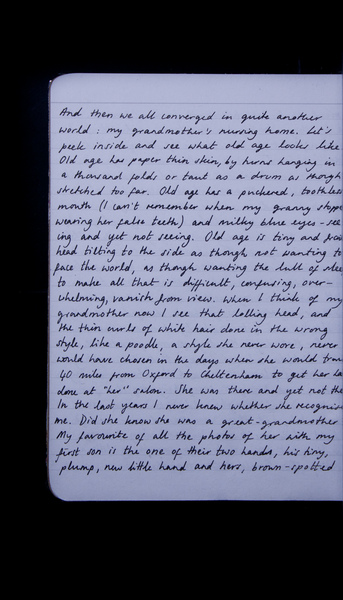 And then we all converged in quite another
world: my grandmother's nursing home. Let's
peek inside and see what old age looks like.
Old age has paper thin skin, by turns hanging in
a thousand folds or taut as a drum as though
stretched too far. Old age has a puckered, toothless
mouth (I can't remember when my granny stopped
wearing her false teeth) and milky blue eyes - see-
ing and yet not seeing. Old age is tiny and frail
head tilting to the side as though not wanting to
face the world, as though wanting the lull of sleep
to make all that is difficult, confusing, over-
whelming, vanish from view. When I think of my
grandmother now I see that lolling head, and
the thin curls of white hair done in the wrong
style, like a poodle, a style she never wore, never
would have chosen in the days when she would
40 miles from Oxford to Cheltenham to get her
done at "her" salon. She was there and yet not
In the last years I never knew whether she recognis
me. Did she know she was a great-grandmother
My favourite of all the photos of her with my
first son is the one of their two hands, his tiny,
plump, new little hand and hers, brown-spotted